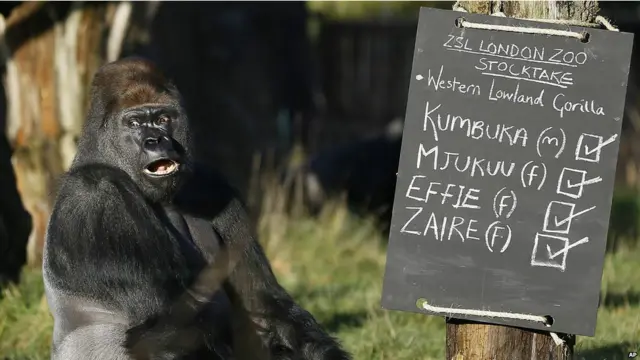 ZSL LONDON ZOO
STOCKTAKE
• Western Lowland Gorilla
KUMBUKA (m)
MJUKUU (f)
EFFIE (f)
ZAIRE (f)
AP